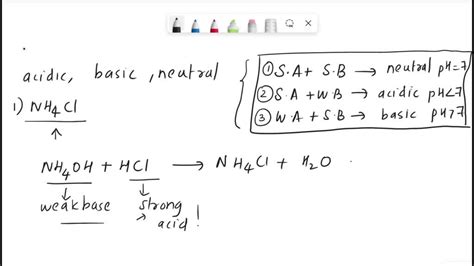 acidic, basic, neutral
① S.A + S.B → neutral pH=7
② S.A + W.B → acidic pH<7
③ W.A + S.B → basic pH>7
1) NH₄Cl
↑
NH₄OH + HCl → NH₄Cl + H₂O
↓ ↓
weak base strong
→ acid!